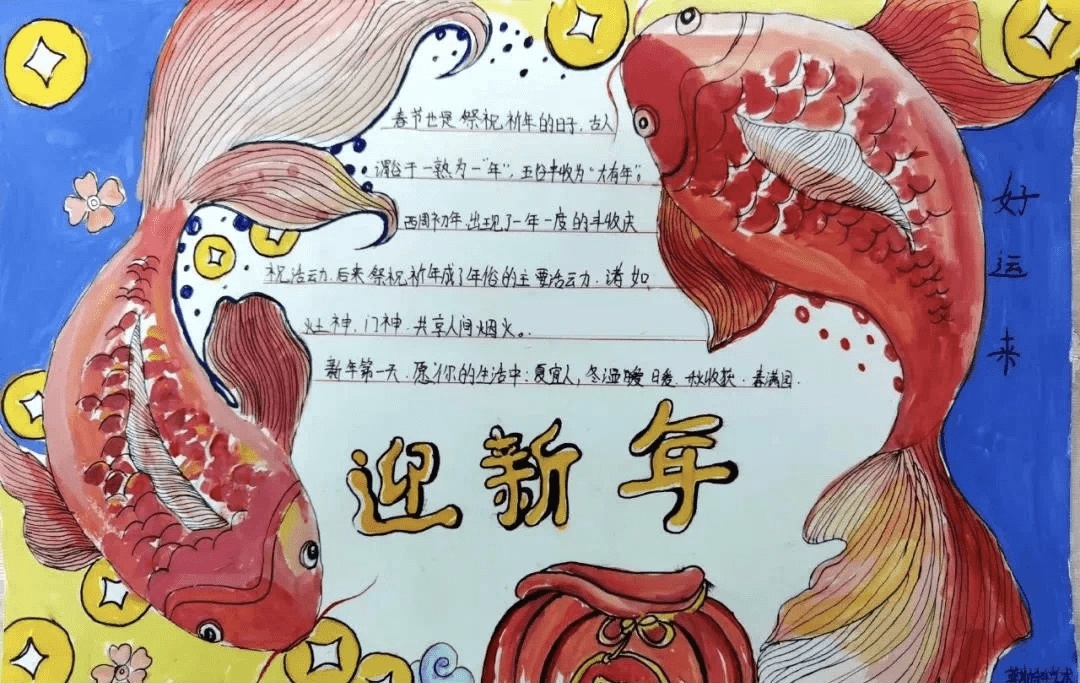 春节也是祭祝祈年的日子，古人
谓谷子一熟为一“年”，五谷丰收为“大有年”。
西周初年，出现了一年一度的丰收庆
祝活动，后来，祭祝祈年成了年俗的主要活动，诸如，
灶神、门神，共享人间烟火。
新年第一天，愿你的生活中：夏宜人，冬温暖，日暖，秋收获，春满园。
迎新年
好运来